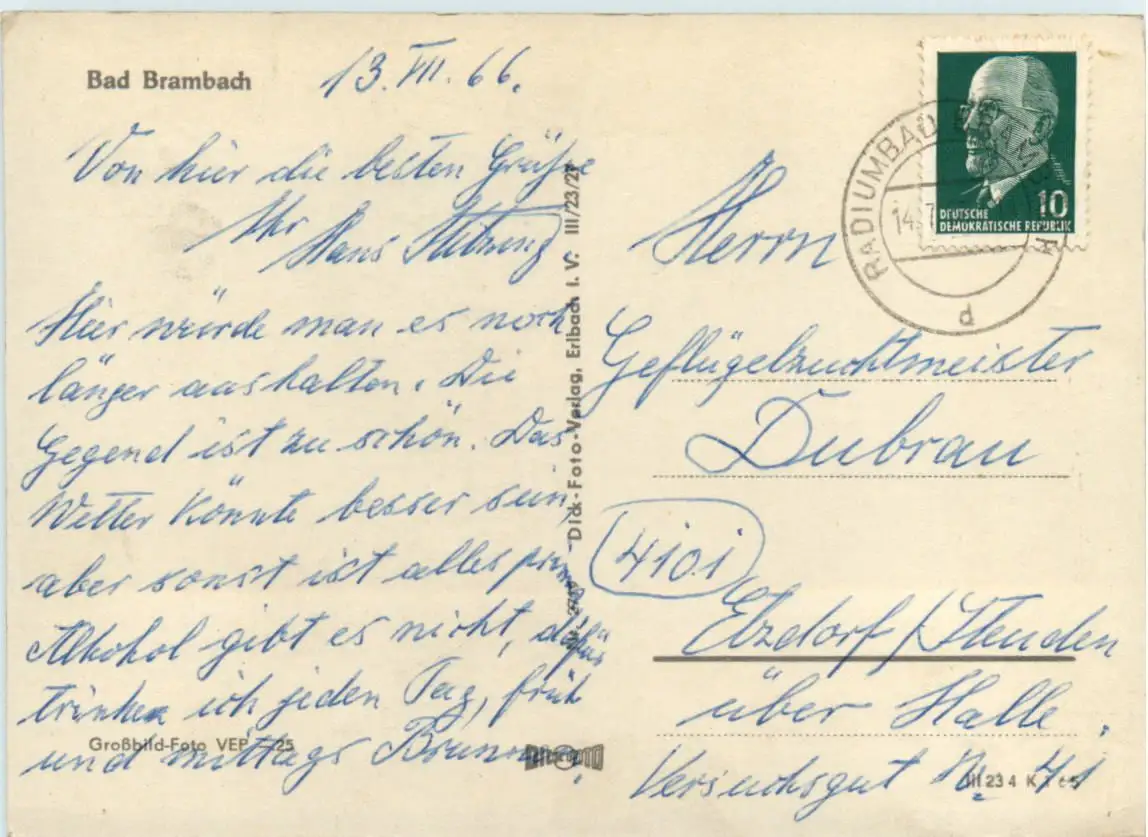 Bad Brambach
13. VII. 66.
Von hier die besten Grüße
Ihr
Hans
Hier würde man es noch
länger aushalten. Die
Gegend ist zu schön. Das
Wetter könnte besser sein,
aber sonst ist alles prima
Alkohol gibt es nicht, dafür
trinken ich jeden Tag, früh
und mittags Brunnen.
Großbild-Foto VEP 25
Dick-Foto-Verlag, Erlbach i. V. III/23/27
RADIUMBAD BRAMBACH
14.7.
d
DEUTSCHE
DEMOKRATISCHE REPUBLIK
10
Herrn
Geflügelzuchtmeister
Dubrau
4101
Etzdorf/Steuden
über Halle.
Versuchsgut
III 23 4 K